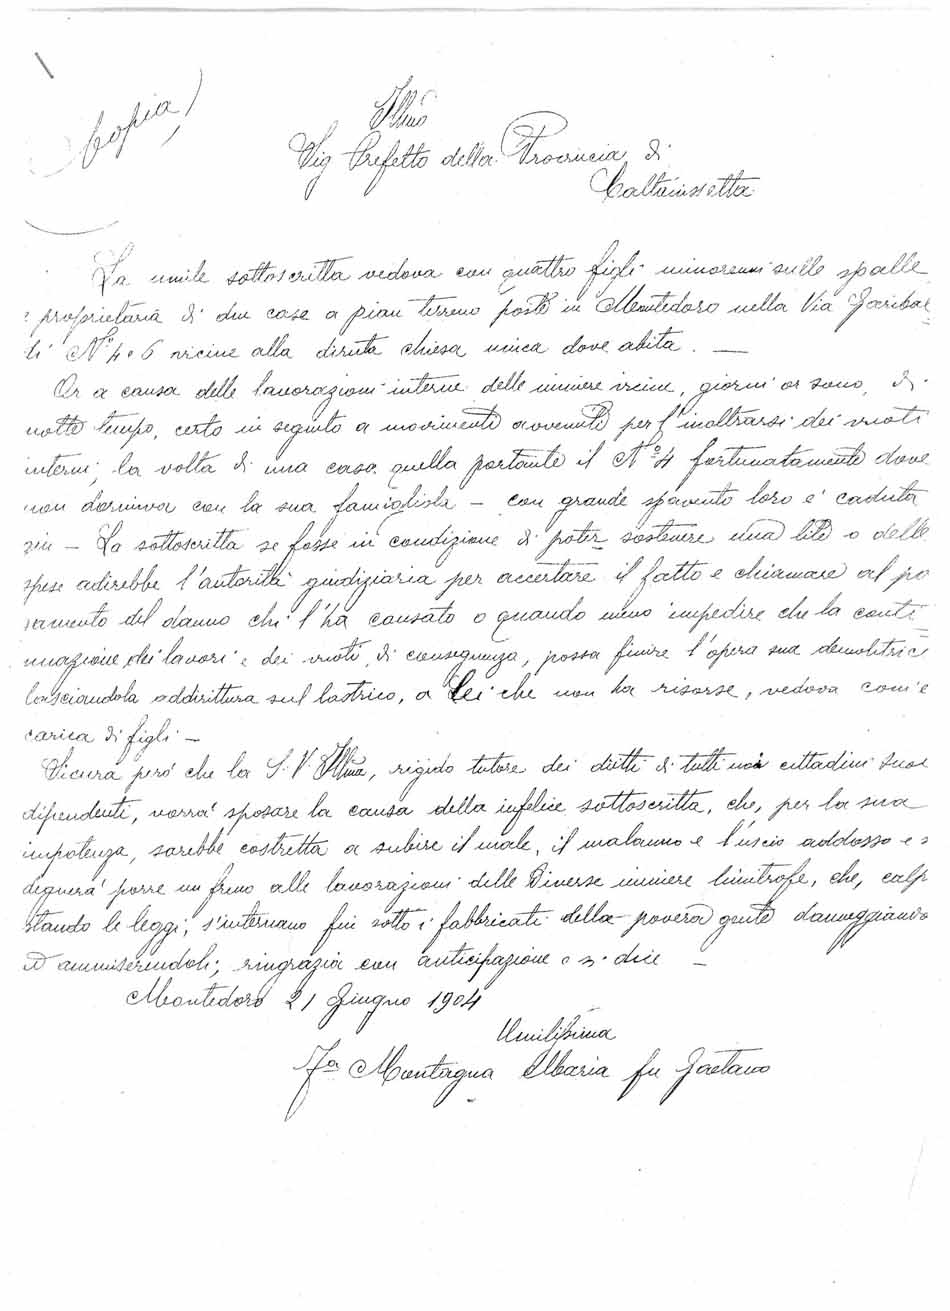 Copia
Illmo
Sig Prefetto della Provincia di
Caltanissetta
La umile sottoscritta vedova con quattro figli minorenni sulle spalle
è proprietaria di due case a pian terreno poste in Montedoro nella Via Garibal=
di Nⁱ 4 e 6 vicine alla diruta chiesa unica dove abita. —
Or a causa delle lavorazioni interne delle miniere vicine, giorni or sono, di
notte tempo, certo in seguito a movimento avvenuto per l'inoltrarsi dei vuoti
interni, la volta di una casa quella portante il Nº 4 fortunatamente dove
non dormiva con la sua famigliola – con grande spavento loro è caduta
giù – La sottoscritta se fosse in condizione di poter sostenere una lite o delle
spese adirebbe l'autorità giudiziaria per accertare il fatto e chiamare al pa
gamento del danno chi l'ha causato o quando meno impedire che la conti=
nuazione dei lavori e dei vuoti di conseguenza, possa finire l'opera sua demolitrice
lasciandola addirittura sul lastrico, a Lei che non ha risorse, vedova com'è
carica di figli –
Sicura però che la S.V. Illma, rigido tutore dei diritti di tutti i cittadini suoi
dipendenti, vorrà sposare la causa della infelice sottoscritta, che, per la sua
impotenza, sarebbe costretta a subire il male, il malanno e l'uscio addosso e
degnerà porre un freno alle lavorazioni delle diverse miniere limitrofe, che, calpe
stando le leggi, s'internano fin sotto i fabbricati della povera gente danneggiando
ed ammiserendoli; ringrazia con anticipazione e si dice –
Montedoro 21 Giugno 1904
Umilissima
Fa Montagna Maria fu Gaetano